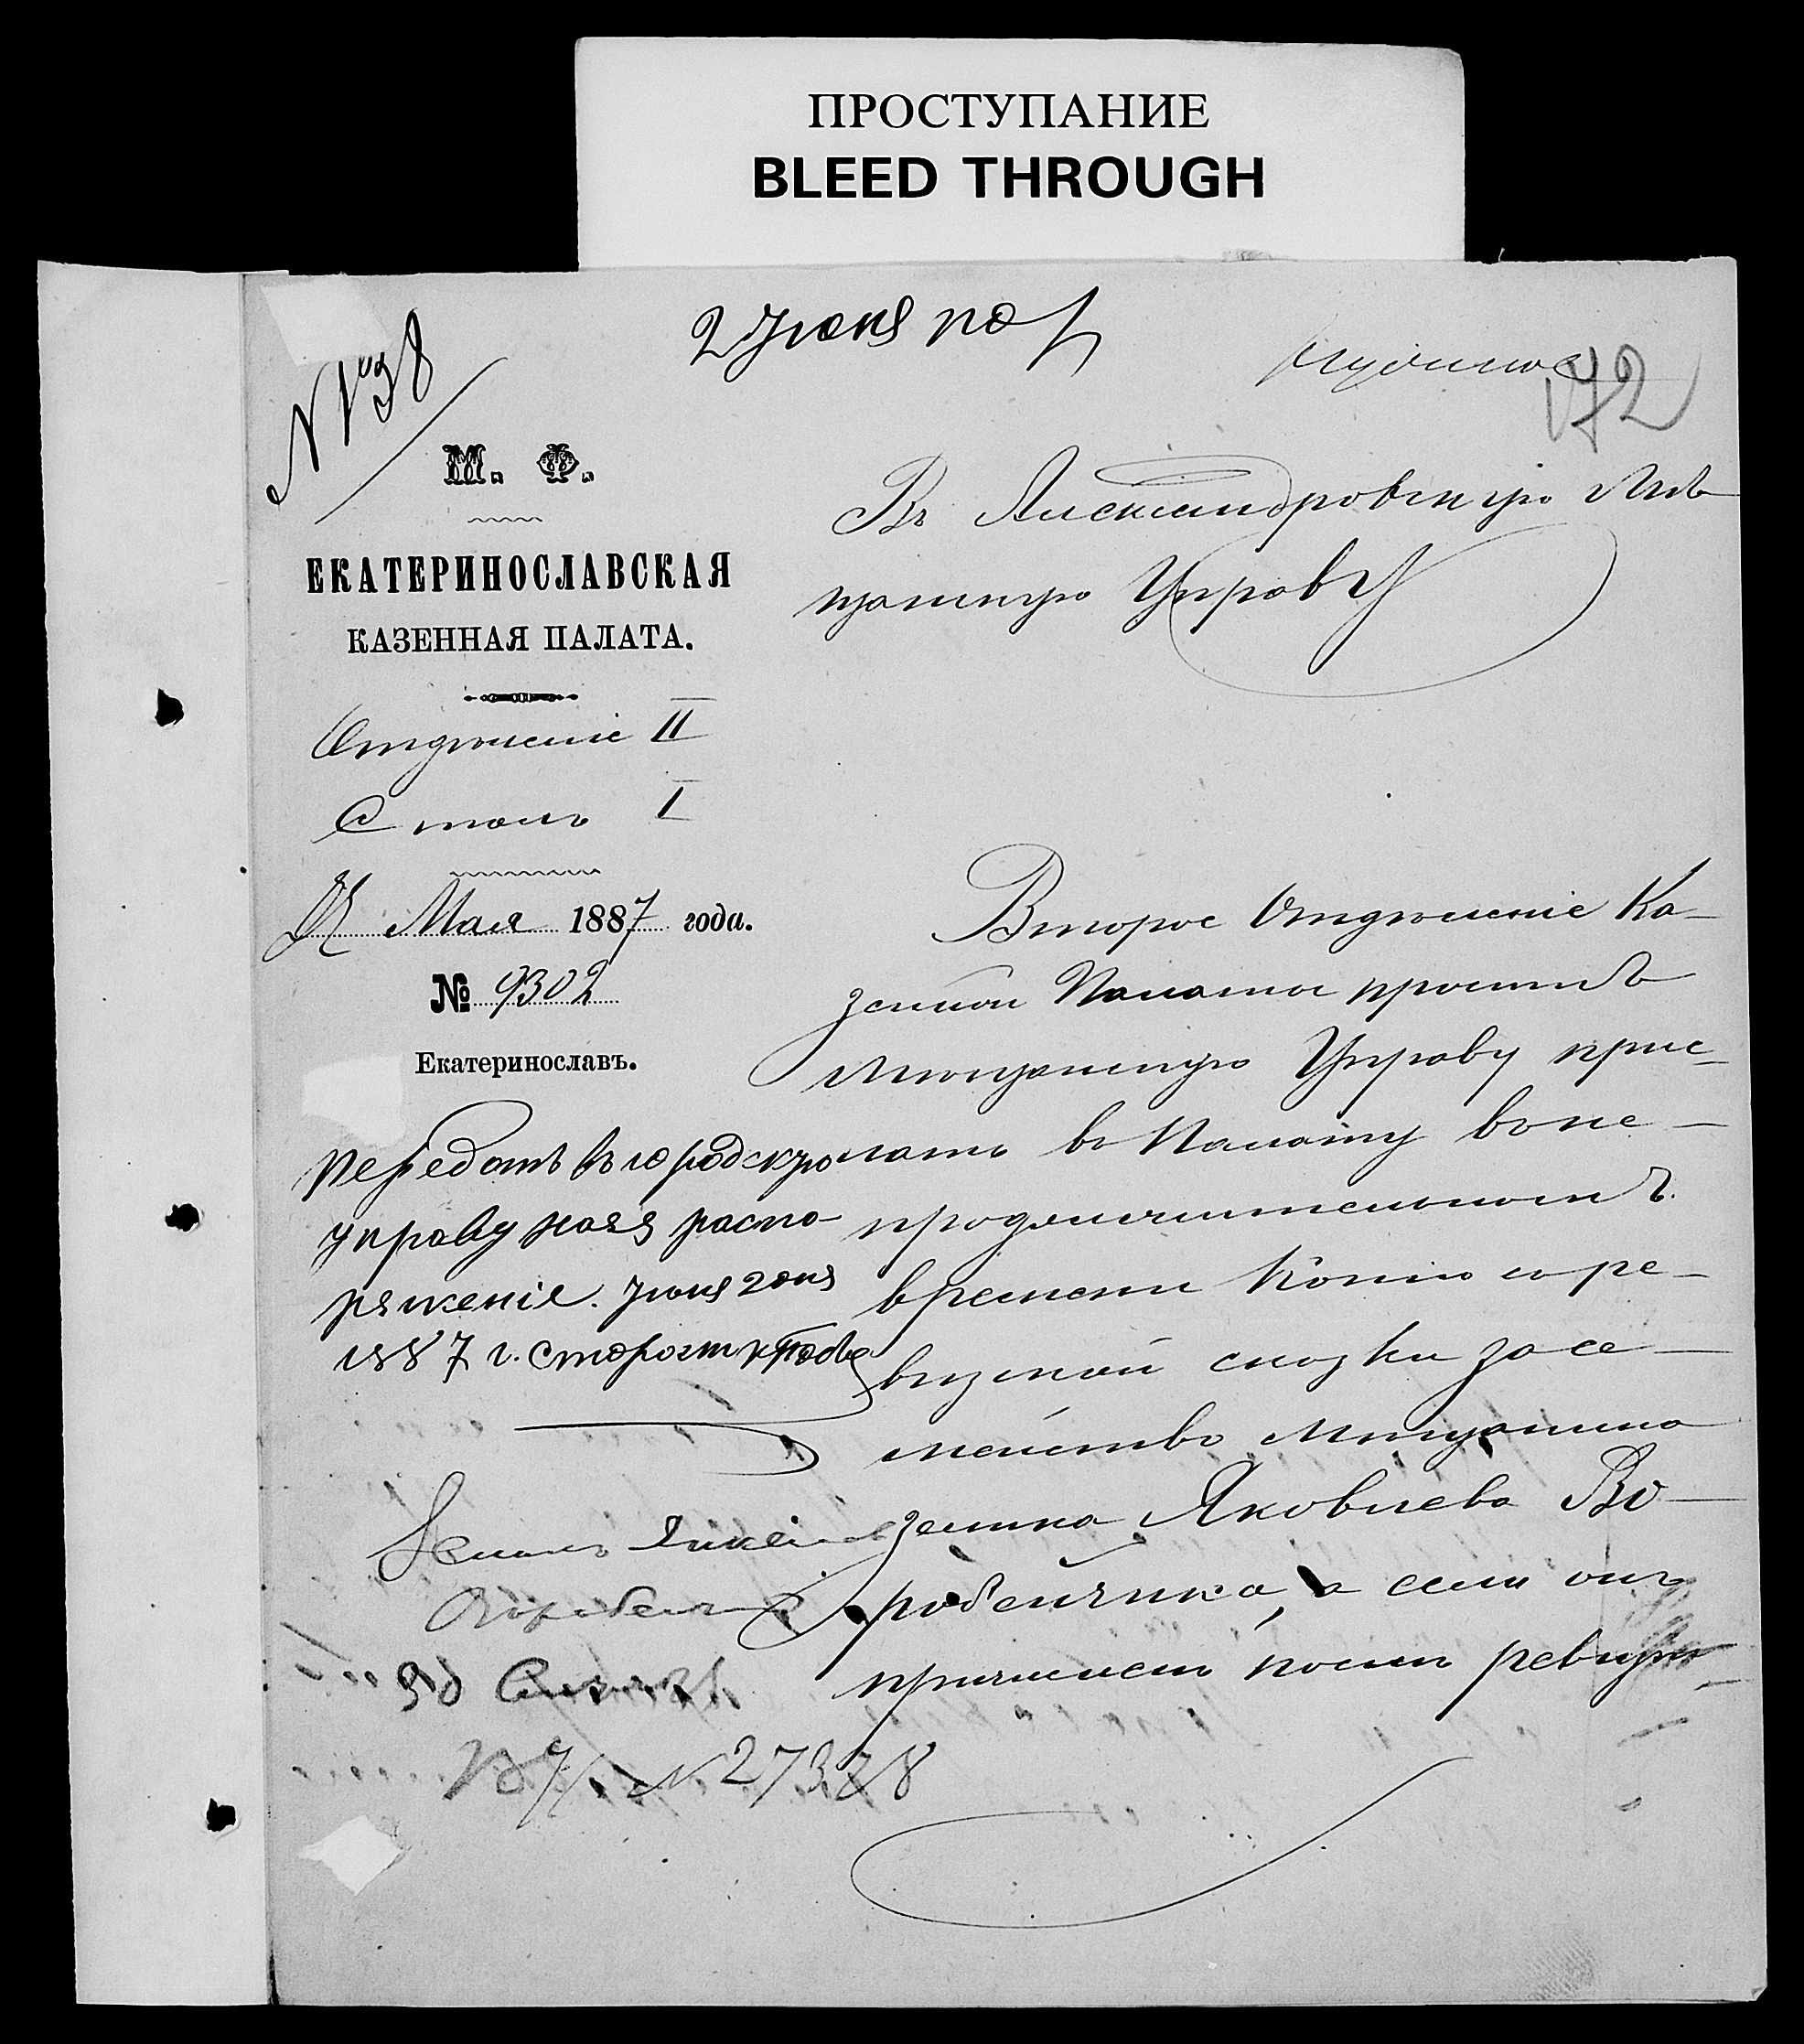 ПРОСТУПАНИЕ
BLEED THROUGH
2 Июня
№ 138
172
М. Ф.
ЕКАТЕРИНОСЛАВСКАЯ
КАЗЕННАЯ ПАЛАТА.
Отдѣленіе II
Столъ I
Мая 1887 года.
№ 9302
Екатеринославъ.
Въ Александровскую Мѣ
щанскую Управу
Второе Отдѣленіе Ка-
зенной Палаты проситъ
Мѣщанскую Управу прис-
лать въ Палату въ не-
продолжительномъ
времени копію съ ре-
визской сказки за се-
мейство мѣщанина
Зелика Яковлева Во-
робейчика, а если онъ
причисленъ послѣ ревизіи
Передать въ городскую
управу на ея распо-
ряженіе. Июня 2 дня
1887 г. Староста
№ 27328